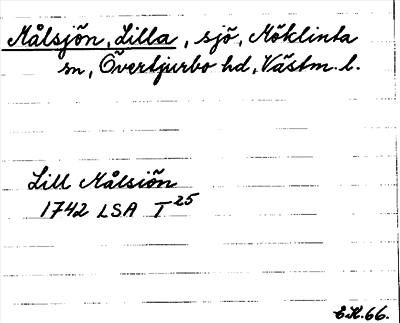 Målsjön, Lilla, sjö, Möklinta
sn, Övertjurbo hd, Västm. l.
Lill Målsiön
1742 LSA T25
E.K. 66.